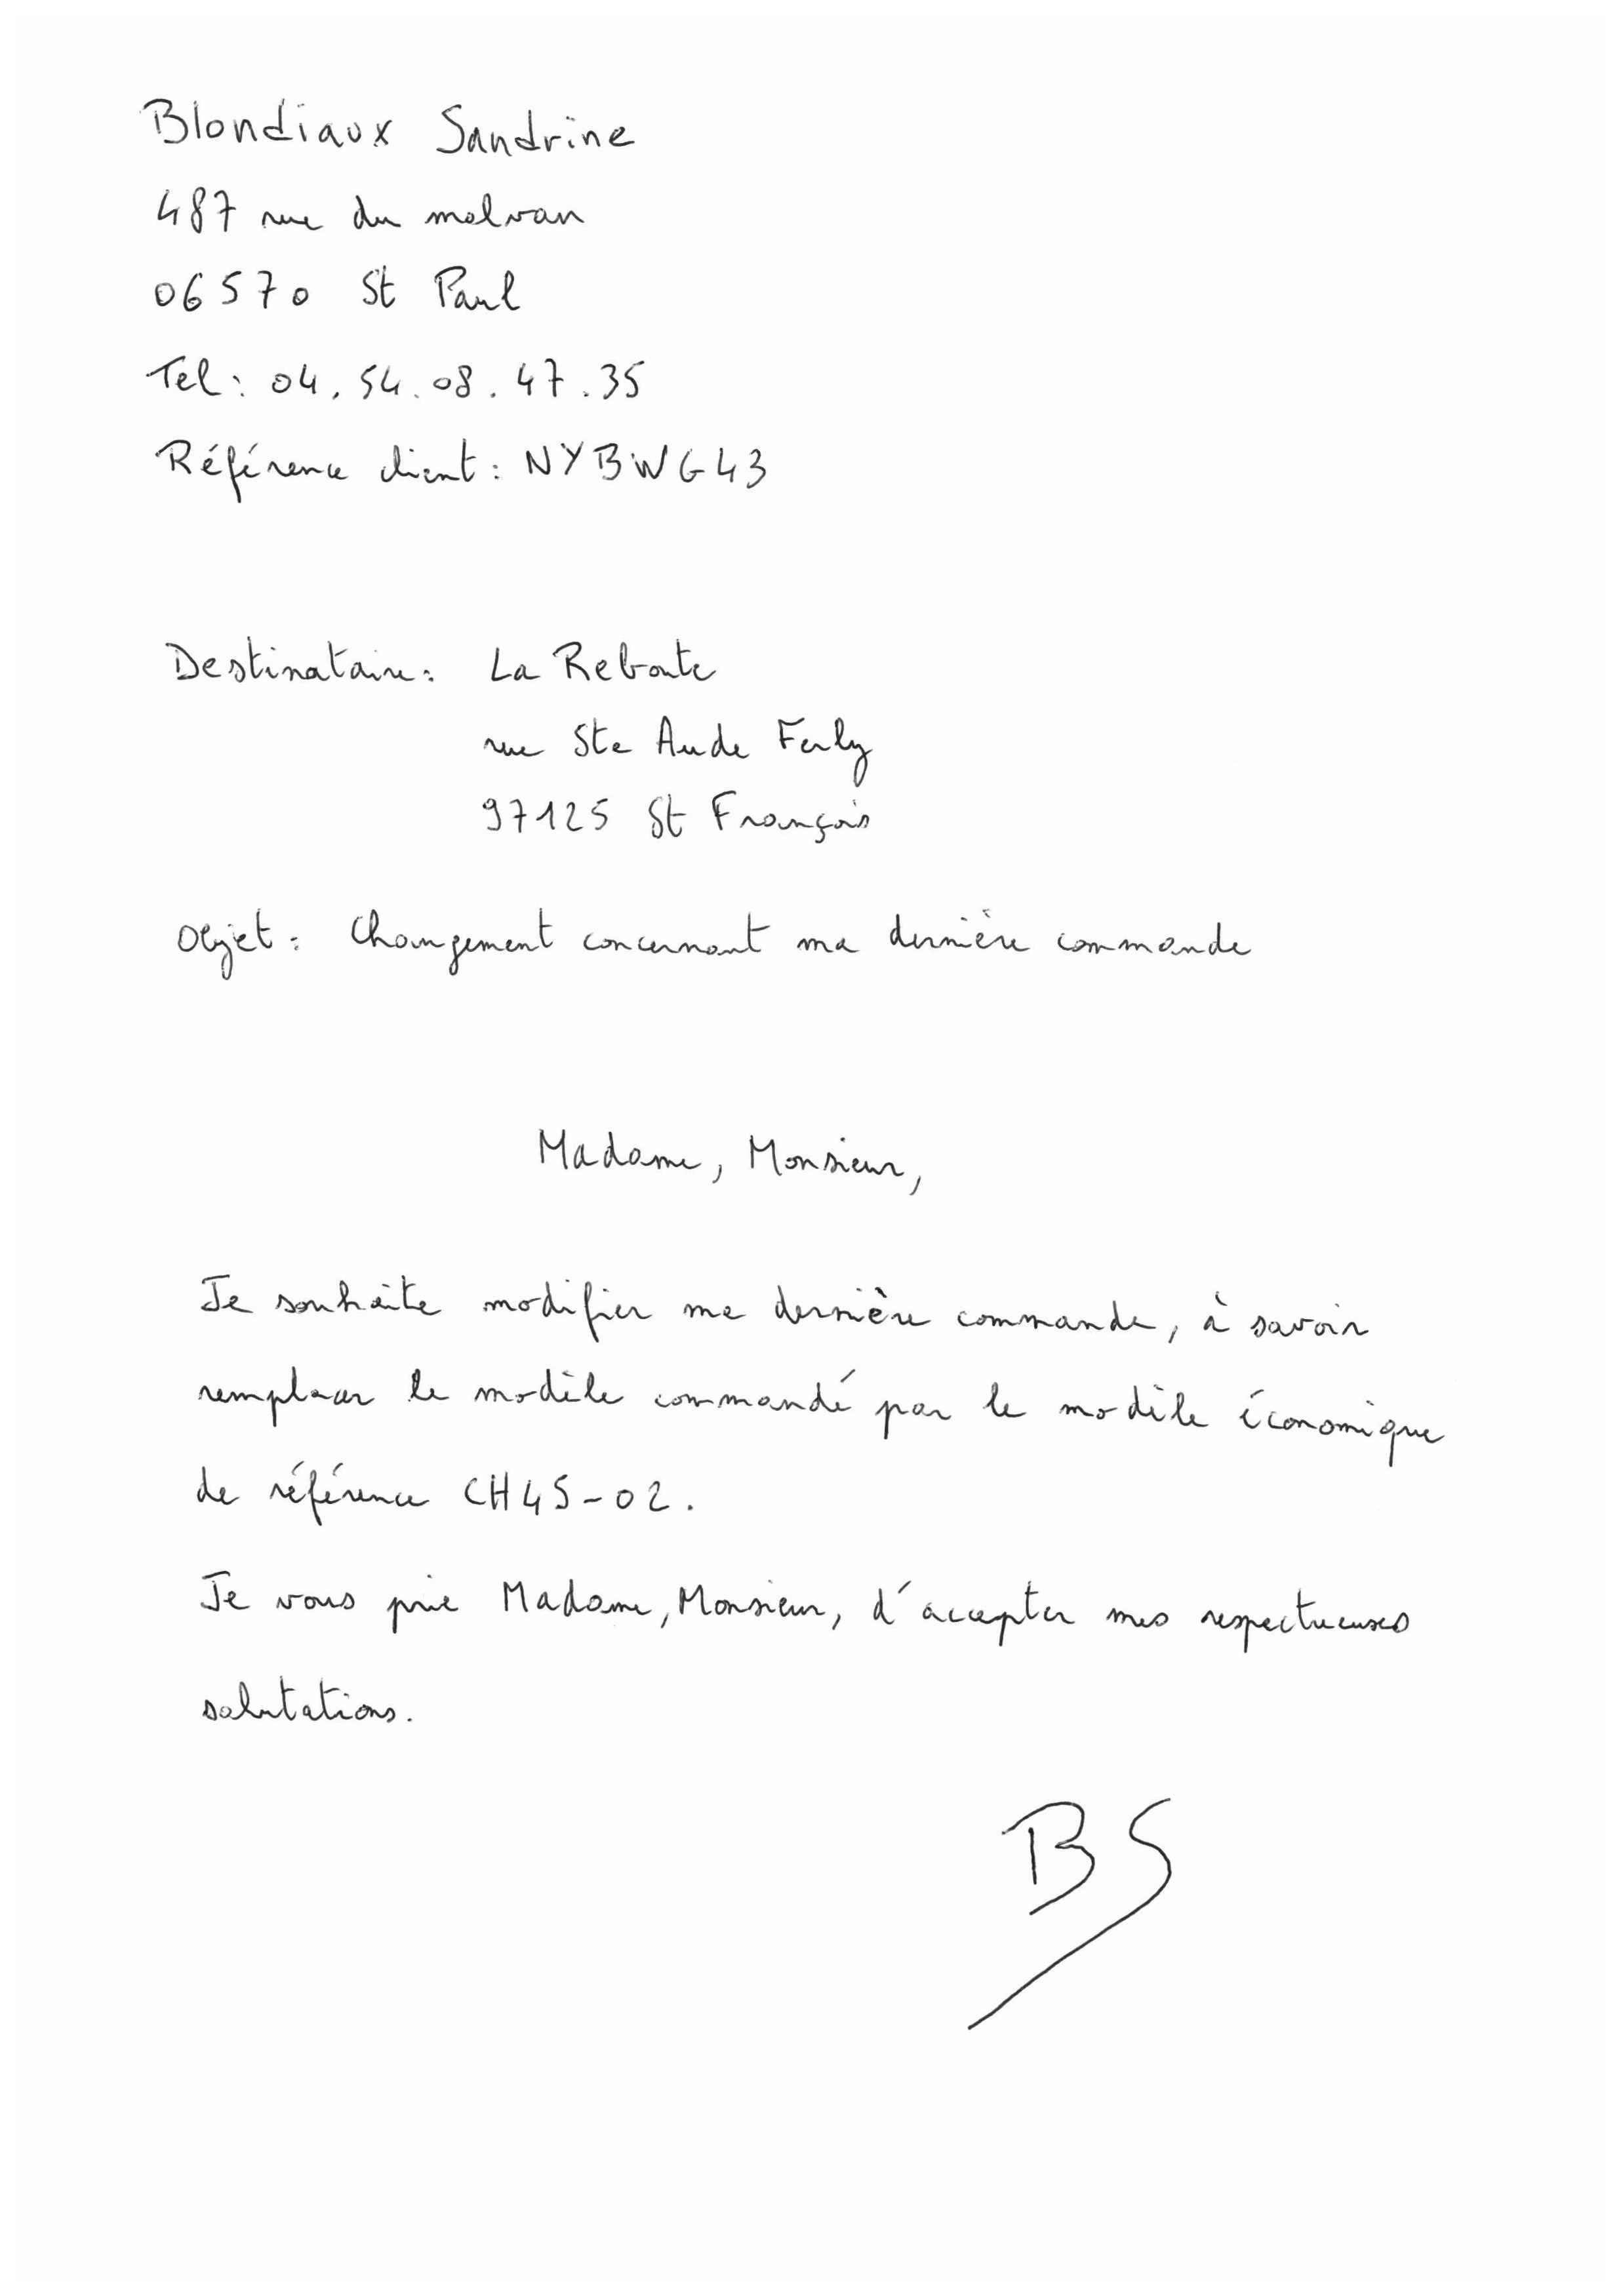 Blondiaux Sandrine
487 rue du malvan
06570 St Paul
Tel : 04.54.08.47.35
Référence client : NYBWG43
Destinataire : La Reboute
rue Ste Aude Ferly
97125 St François
Objet : Changement concernant ma dernière commande
Madame, Monsieur,
Je souhaite modifier ma dernière commande, à savoir
remplacer le modèle commandé par le modèle économique
de référence CH45-02.
Je vous prie Madame, Monsieur, d'accepter mes respectueuses
salutations.
BS